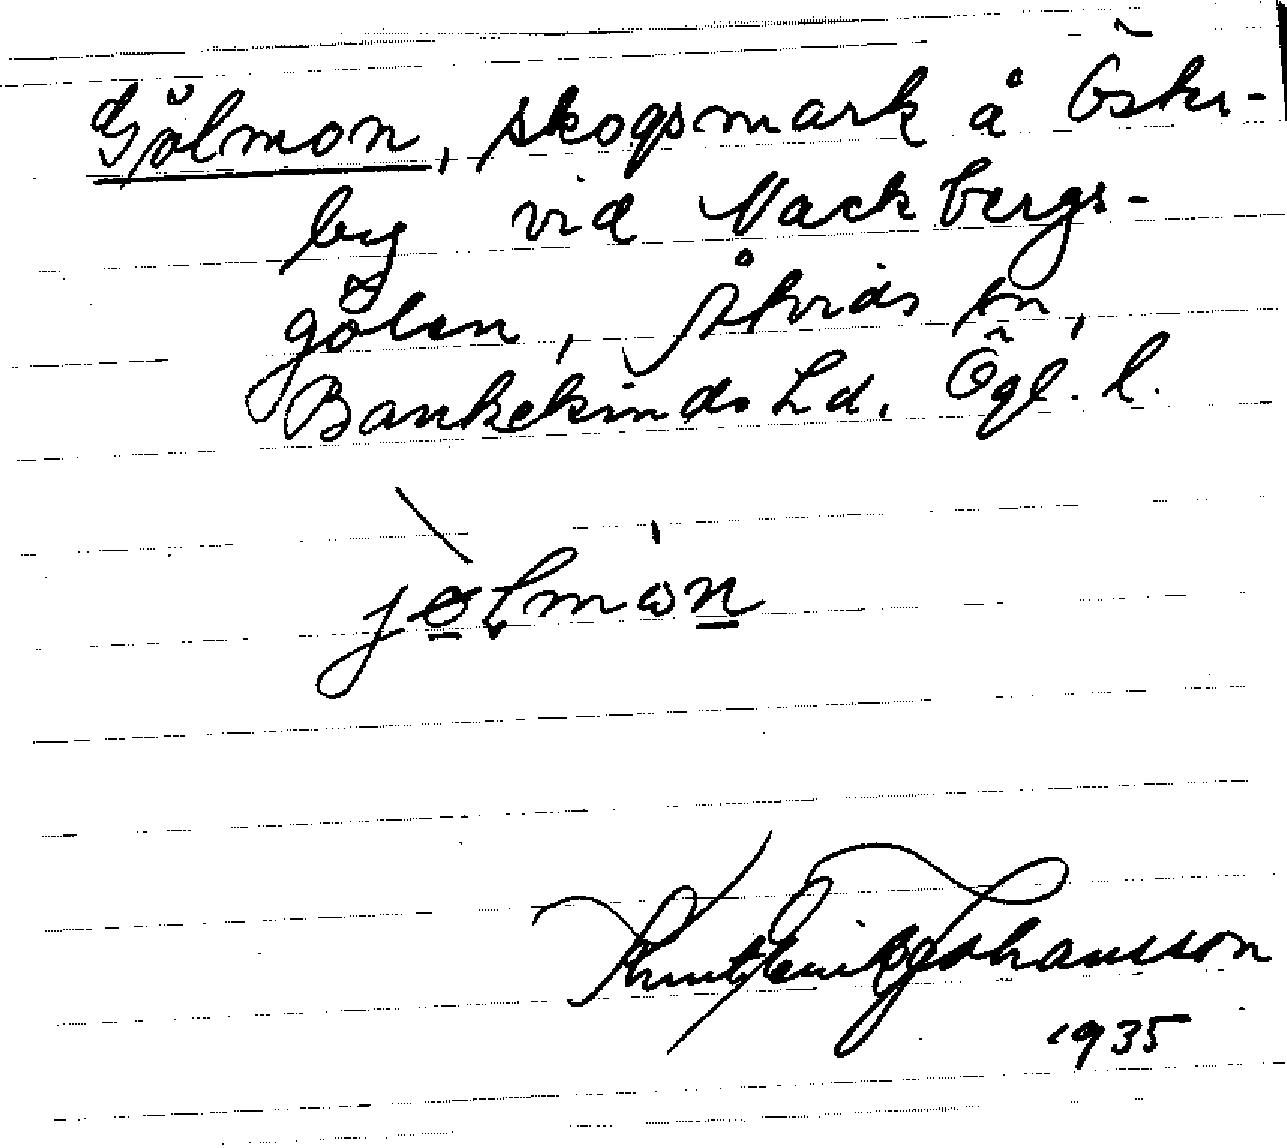 Gölmon, skogsmark å Öster-
by vid Nackbergs-
gölen, Åtvids sn,
Bankekinds hd. Ögl. l.
Knut Erik Johansson
1935